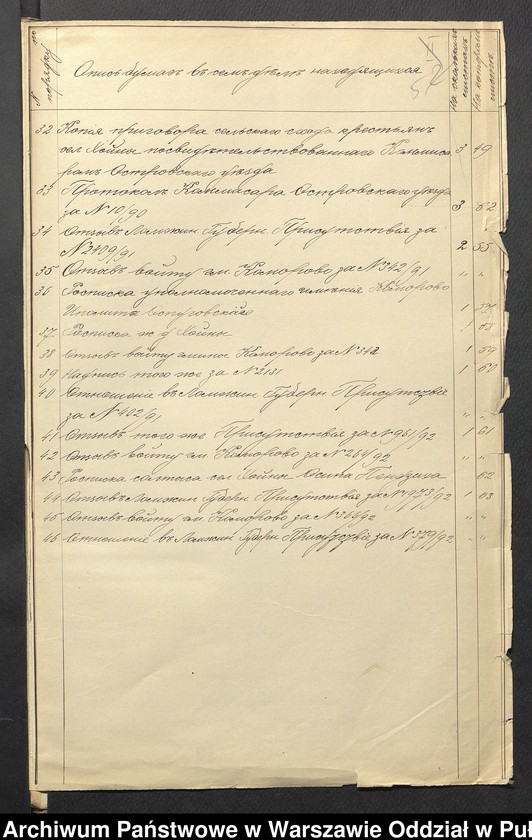 № по порядку
Опись бумагъ въ семъ дѣлѣ находящихся
На сколькихъ листахъ
На котором листѣ
32 Копія приговора сельскаго схода крестьянъ
сел. Хойны посвидѣтельствованнаго Коммиса 3 49
ромъ Островскаго уѣзда
33 Протоколъ Коммисара Островскаго уѣзда
за N 10/90 3 52
34 Отзывъ Ломжин. Губерн. Присутствія за
N 2409/91 2 55
35 Отзывъ войту гм. Коморово за N 342/91 " "
36 Росписка уполномоченнаго имѣнія Коморово
1 57
37 Росписка жу Хойны 1 58
38 Отзывъ войту гмины Коморово за N 342 1 59
39 Надпись того же за N 2131 1 60
40 Отношеніе въ Ломжин. Губерн. Присутствіе
за N 402/91 " "
41 Отзывъ того же Присутствія за N 961/92 1 61
42 Отзывъ войту гм. Коморово за N 264/92 " "
43 Росписка солтыса сел. Хойны Осипа 62
44 Отзывъ Ломжин. Губерн. Присутствія за N 1933/92 1 63
45 Отзывъ войту гм. Коморово за N 366/92 " "
46 Отношеніе въ Ломжин. Губерн. Присутствіе за N 379/92 " "
Archiwum Państwowe w Warszawie Oddział w Puł